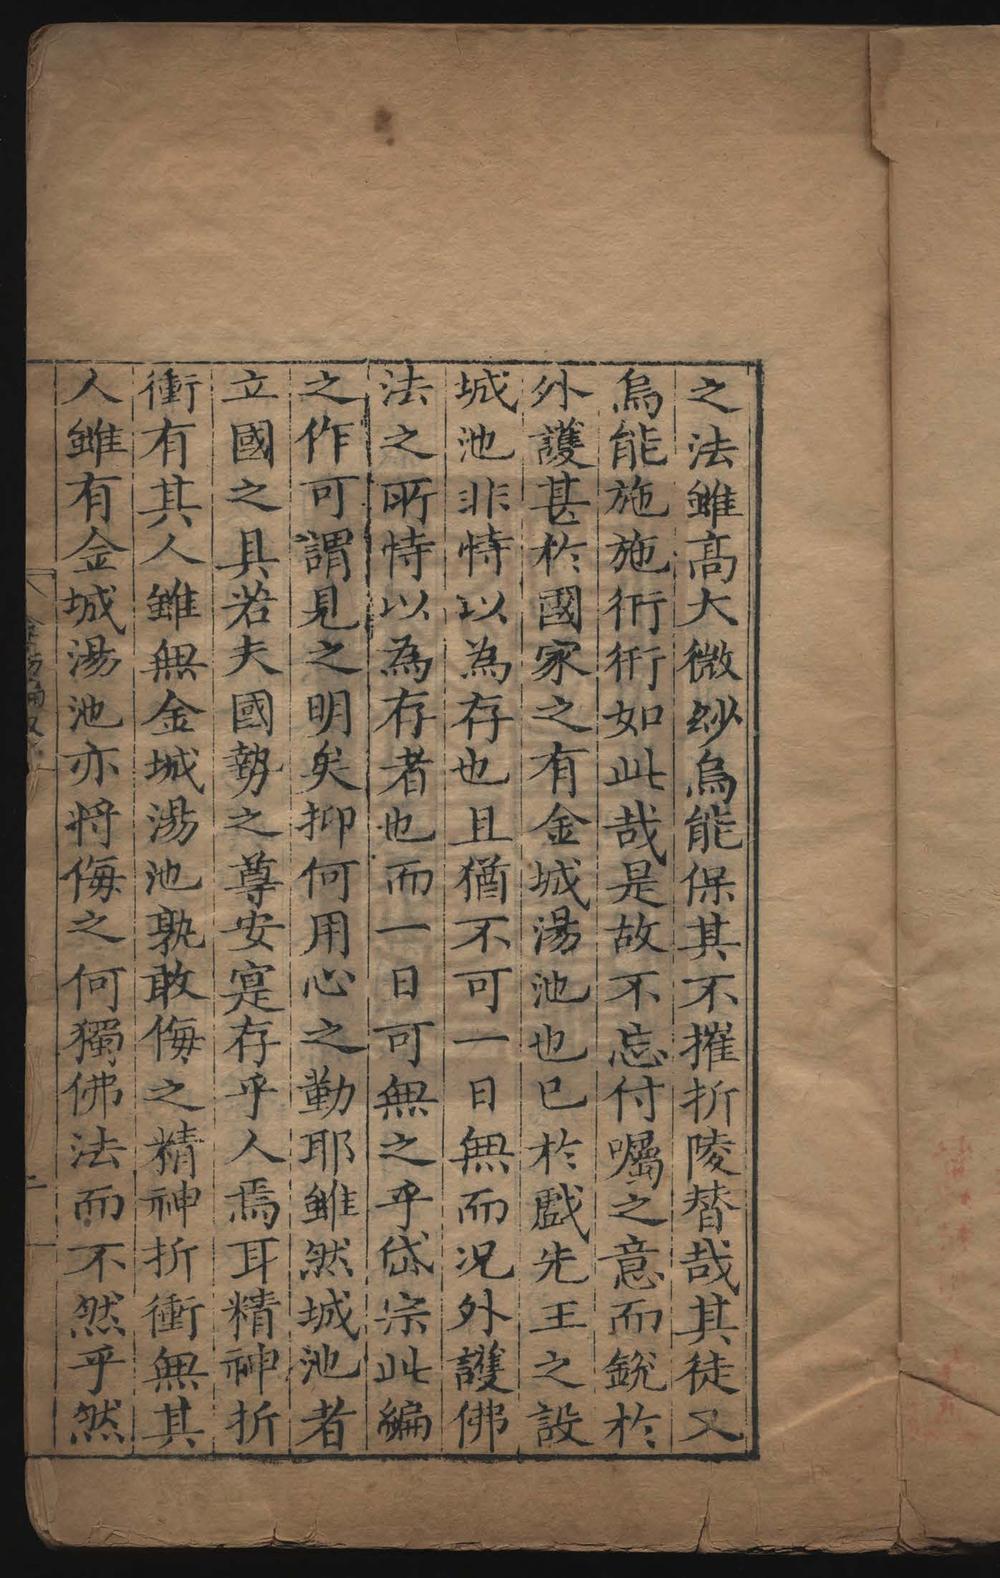 之法雖高大微紗烏能保其不摧折陵替哉其徒又
烏能施施衎衎如此哉是故不忘付囑之意而銳於
外護甚於國家之有金城湯池也已於戲先王之設
城池非恃以為存也且猶不可一日無而况外護佛
法之所恃以為存者也而一日可無之乎岱宗此編
之作可謂見之明矣抑何用心之勤耶雖然城池者
立國之具若夫國勢之尊安寔存乎人焉耳精神折
衝有其人雖無金城湯池孰敢侮之精神折衝無其
人雖有金城湯池亦將侮之何獨佛法而不然乎然